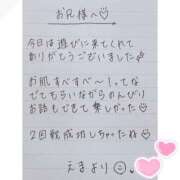 お兄様へ♡
今日は遊びに来てくれて
ありがとうございました
お肌すべすべ〜!ってな
でてもらいながらのんびり
お話もできて楽しかった♡
2回戦成功しちゃったね♡
えまより☺